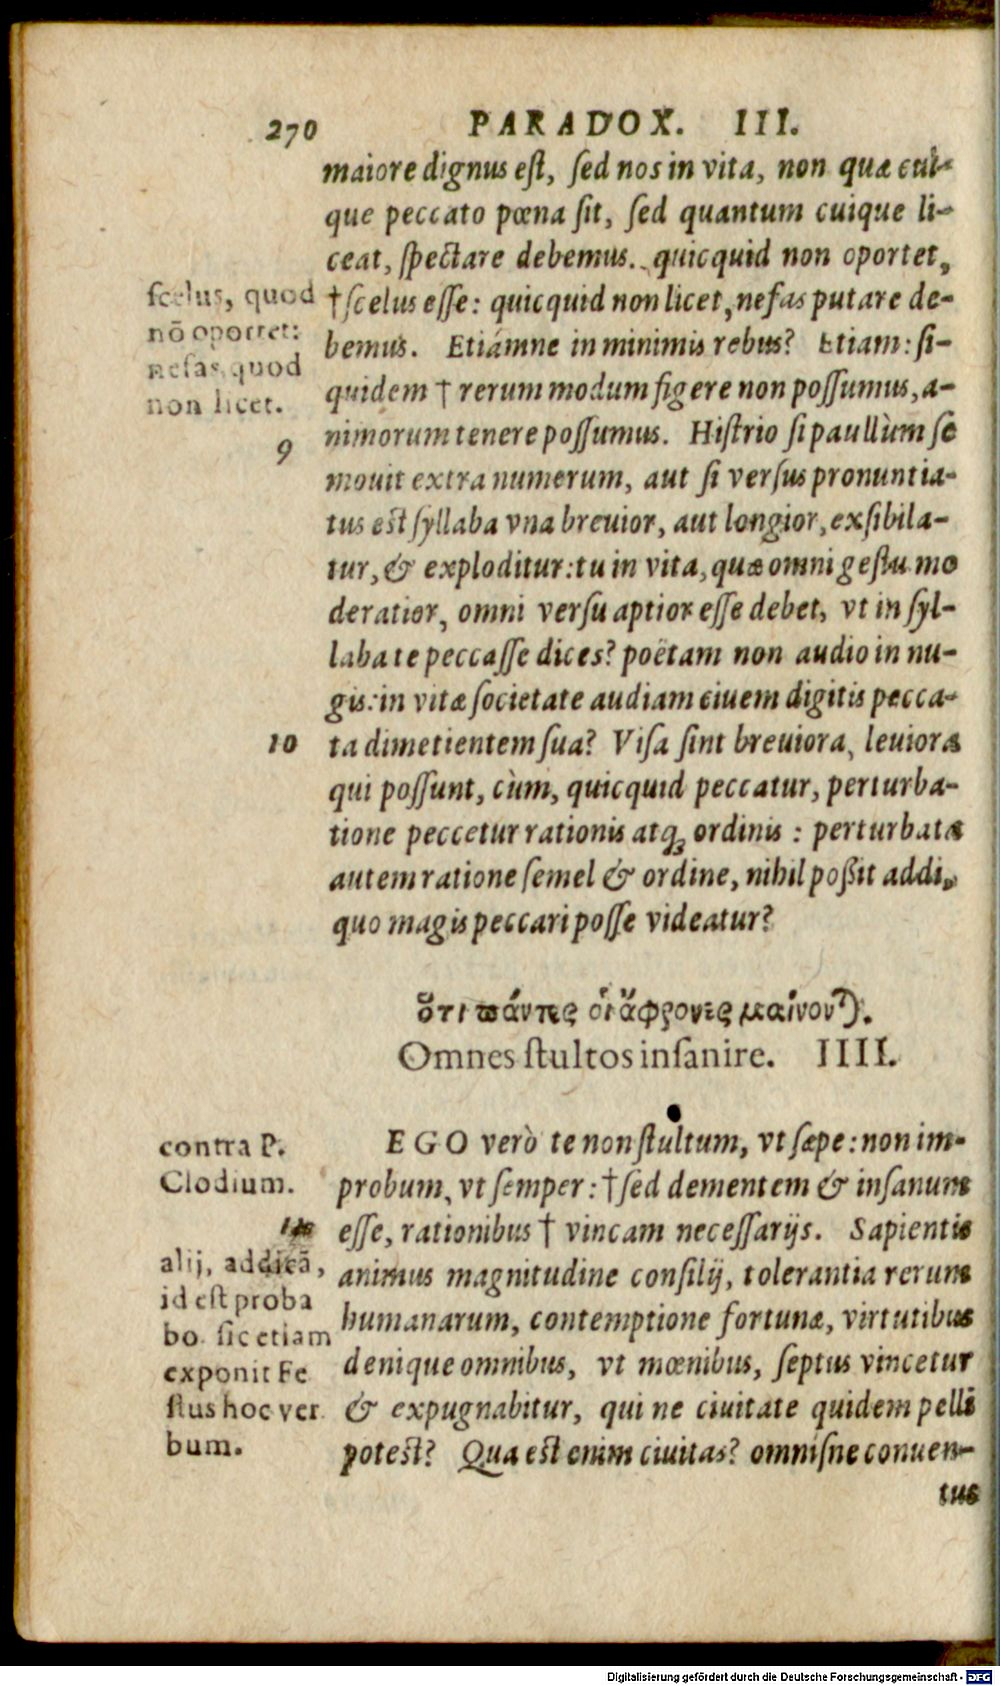 270 PARADOX. III.
maiore dignus eſt, ſed nos in vita, non quæ cui-
que peccato pœna ſit, ſed quantum cuique li-
ceat, ſpectare debemus. quicquid non oportet,
†ſcelus eſſe: quicquid non licet, nefas putare de-
bemus. Etiámne in minimis rebus? Etiam: ſi-
quidem † rerum modum figere non poſſumus, a-
nimorum tenere poſſumus. Hiſtrio ſi paullùm ſe
mouit extra numerum, aut ſi verſus pronuntia-
tus eſt ſyllaba vna breuior, aut longior, exſibila-
tur, & exploditur: tu in vita, quæ omni geſtu mo
deratior, omni verſu aptior eſſe debet, vt in ſyl-
laba te peccaſſe dices? poëtam non audio in nu-
gis: in vitæ ſocietate audiam ciuem digitis pecca-
ta dimetientem ſua? Viſa ſint breuiora, leuiora
qui poſſunt, cùm, quicquid peccatur, perturba-
tione peccetur rationis atq; ordinis : perturbata
autem ratione ſemel & ordine, nihil poßit addi,
quo magis peccari poſſe videatur?
ſcelus, quod
nō oportet:
nefas, quod
non licet.
9
10
ὅτι πάντες οἱ ἄφρονες μαίνονται.
Omnes ſtultos inſanire. IIII.
EGO verò te non ſtultum, vt ſæpe: non im-
probum, vt ſemper: †ſed dementem & inſanum
eſſe, rationibus † vincam neceſſarijs. Sapientis
animus magnitudine conſilij, tolerantia rerum
humanarum, contemptione fortunæ, virtutibus
denique omnibus, vt mœnibus, ſeptus vincetur
& expugnabitur, qui ne ciuitate quidem pelli
poteſt? Quæ eſt enim ciuitas? omniſne conuen-
tus
contra P.
Clodium.
alij, addicā,
id eſt proba
bo. ſic etiam
exponit Fe
ſtus hoc ver
bum.
Digitalisierung gefördert durch die Deutsche Forschungsgemeinschaft - DFG